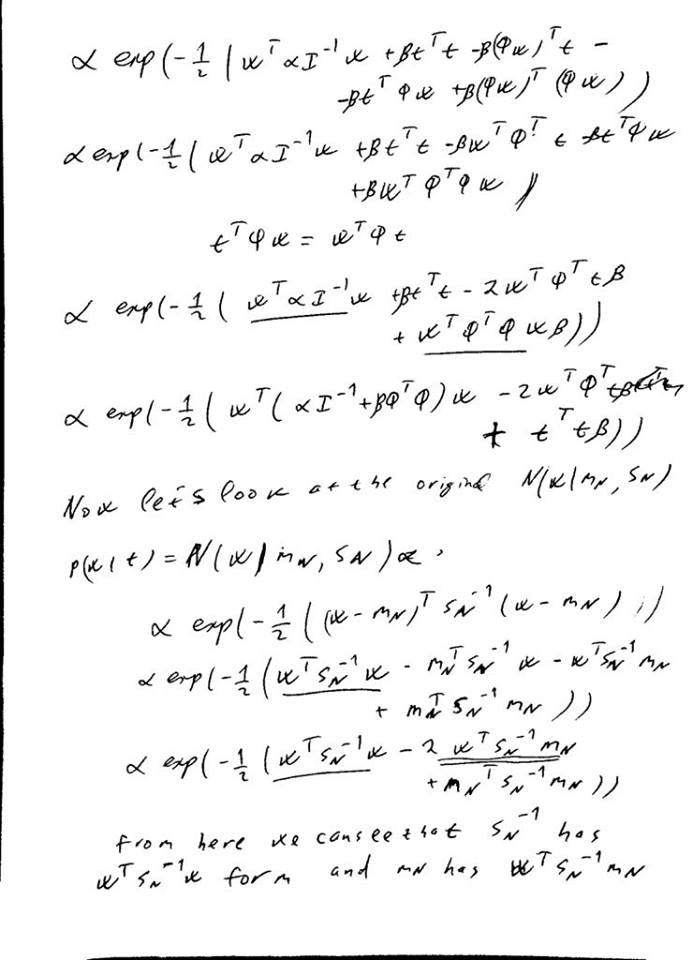 ∝ exp(-1/2 (w^T αI^-1 w + βt^T t - β(Φw)^T t -
-βt^T Φw + β(Φw)^T (Φw))
∝ exp(-1/2 (w^T αI^-1 w + βt^T t - βw^T Φ^T t - βt^T Φw
+βw^T Φ^T Φ w)
t^T Φw = w^T Φ t
∝ exp(-1/2 ( w^T αI^-1 w + βt^T t - 2w^T Φ^T tβ
+ w^T Φ^T Φ wβ))
∝ exp(-1/2 ( w^T (αI^-1 + βΦ^T Φ) w - 2w^T Φ^T tβ
+ t^T tβ))
Now let's look at the original N(w|mN, SN)
p(w|t) = N(w|mN, SN) ∝
∝ exp(-1/2 ((w - mN)^T SN^-1 (w - mN)))
∝ exp(-1/2 (w^T SN^-1 w - mN^T SN^-1 w - w^T SN^-1 mN
+ mN^T SN^-1 mN))
∝ exp(-1/2 (w^T SN^-1 w - 2 w^T SN^-1 mN
+ mN^T SN^-1 mN))
from here we can see that SN^-1 has
w^T SN^-1 w form and mN has w^T SN^-1 mN